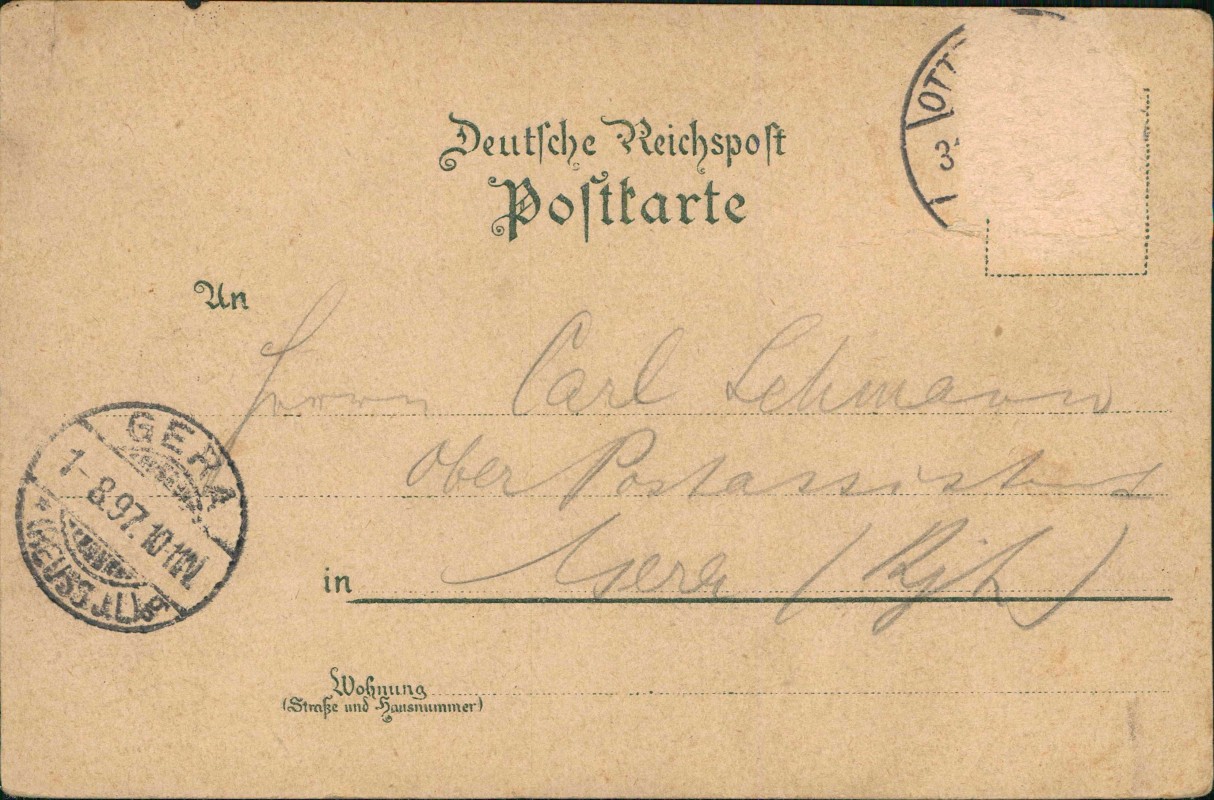 Deutsche Reichspost
Postkarte
OTT
3
An
Herrn Carl Lehmann
Ober Postassistent
in Gera (Rjß)
GERA
1-8.97.10-11N.
* (REUSS J.L.) g
Wohnung
(Straße und Hausnummer)